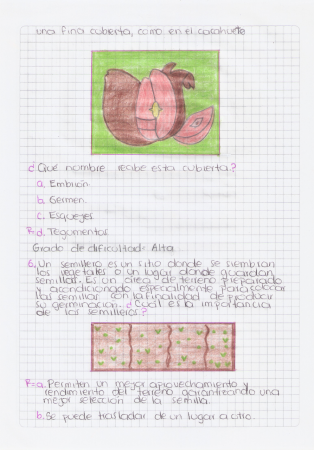 una fina cubierta, como en el cacahuete
¿Qué nombre recibe esta cubierta?
a. Embrión.
b. Germen.
c. Esquejes
R= d. Tegumentos
Grado de dificultad: Alta
6. Un semillero es un sitio donde se siembran
los vegetales o un lugar donde guardan
semillas. Es un área de terreno preparado
y acondicionado especialmente para colocar
las semillas con la finalidad de producir
su germinación. ¿Cuál es la importancia
de los semilleros?
R= a. Permiten un mejor aprovechamiento y
rendimiento del terreno garantizando una
mejor selección de la semilla.
b. Se puede trasladar de un lugar a otro.